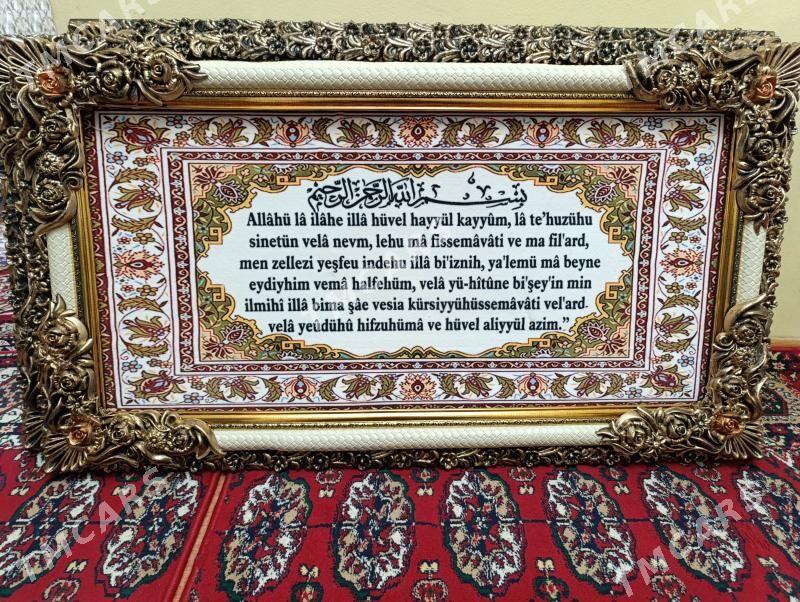 بسم الله الرحمن الرحيم
Allâhü lâ ilâhe illâ hüvel hayyül kayyûm, lâ te'huzühu
sinetün velâ nevm, lehu mâ fissemâvâti ve ma fil'ard,
men zellezi yeşfeu indehu illâ bi'iznih, ya'lemü mâ beyne
eydiyhim vemâ halfehüm, velâ yü-hîtûne bi'şey'in min
ilmihî illâ bima şâe vesia kürsiyyühüssemâvâti vel'ard.
velâ yeûdühû hifzuhümâ ve hüvel aliyyül azim.”
TMCARS
TMCARS
TMCARS
TMCARS
TMCARS
TMCARS
TMCARS
TMCARS